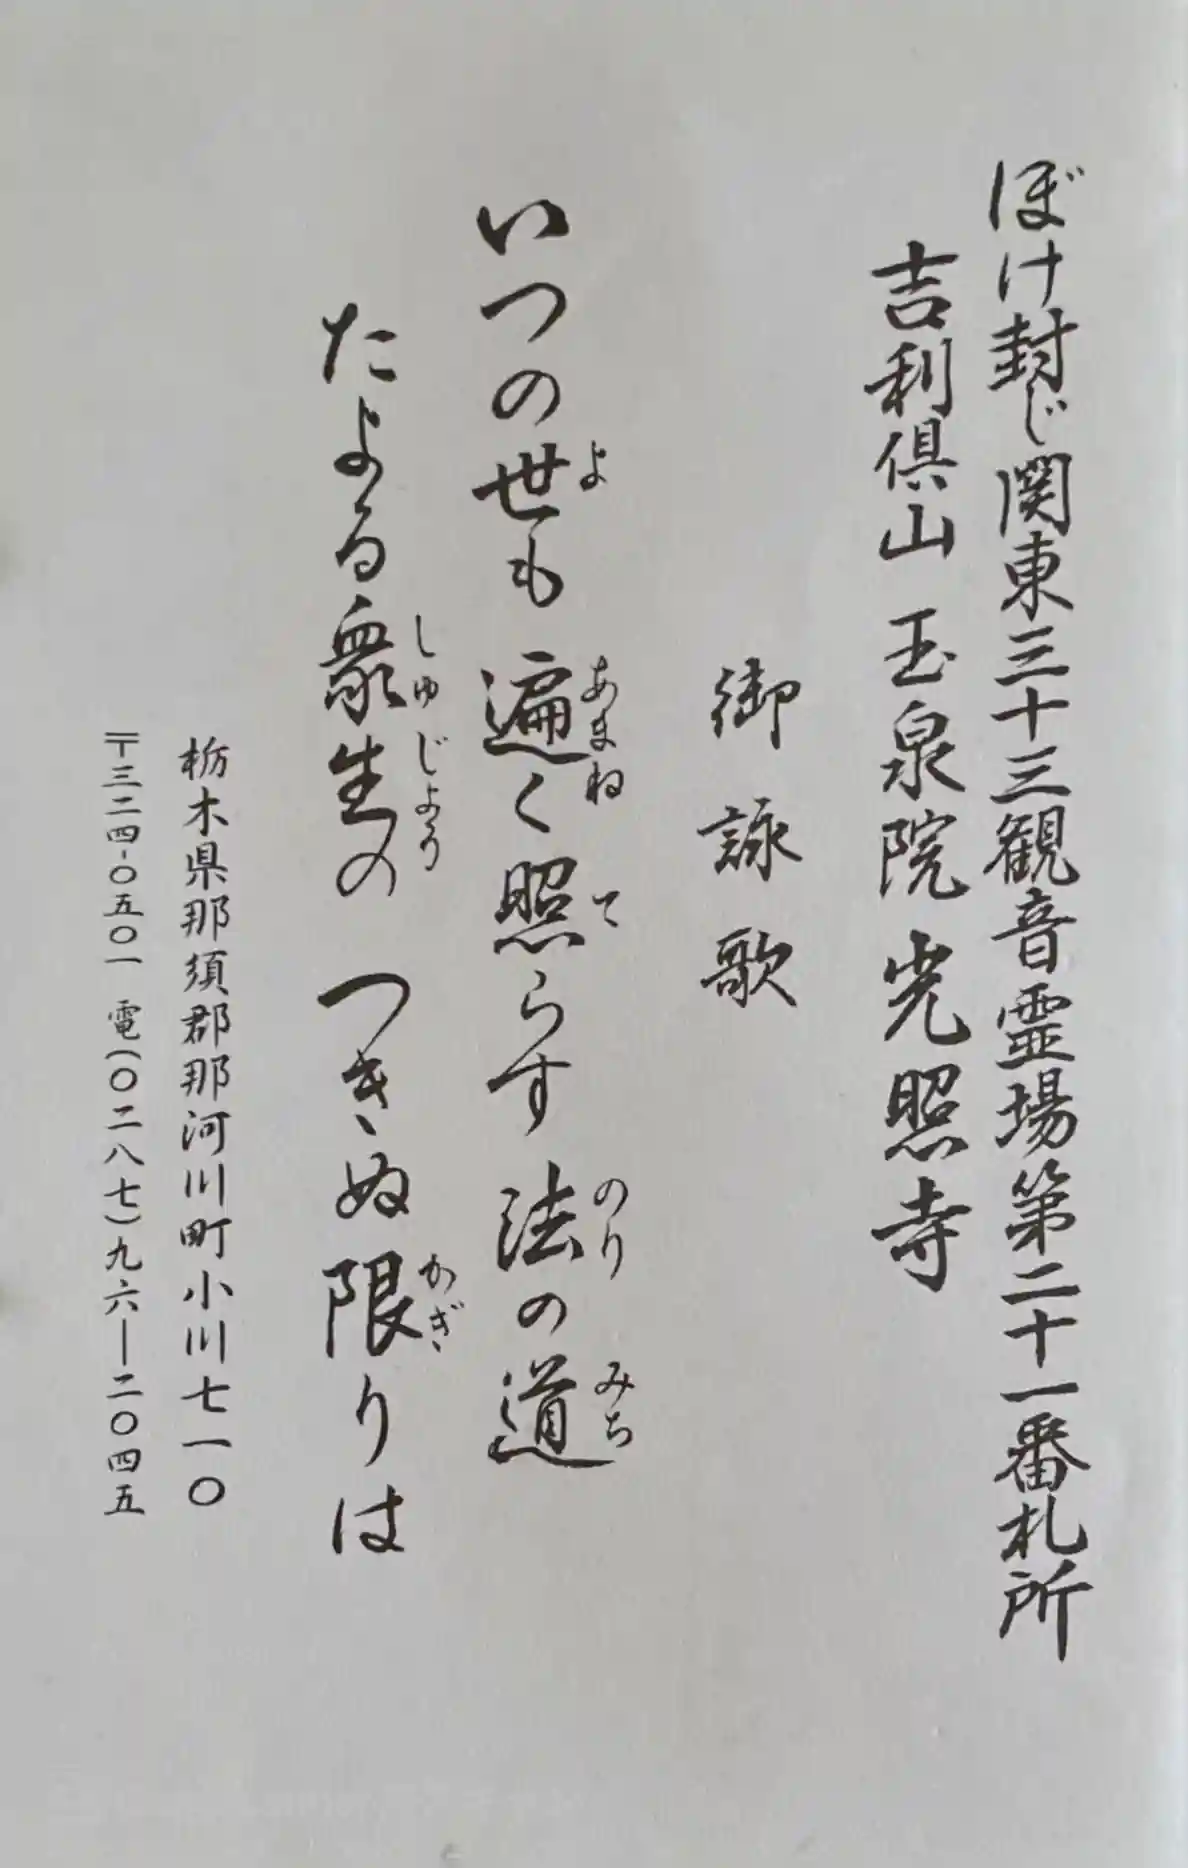 ぼけ封じ関東三十三観音霊場第二十一番札所
吉利倶山 玉泉院 光照寺
御詠歌
いつの世も 遍く照らす 法の道
よ あまね て のり みち
たよる衆生の つきぬ限りは
しゅじょう かぎ
栃木県那須郡那珂川町小川七一〇
〒三二四-〇五〇一 電(〇二八七)九六―二〇四五